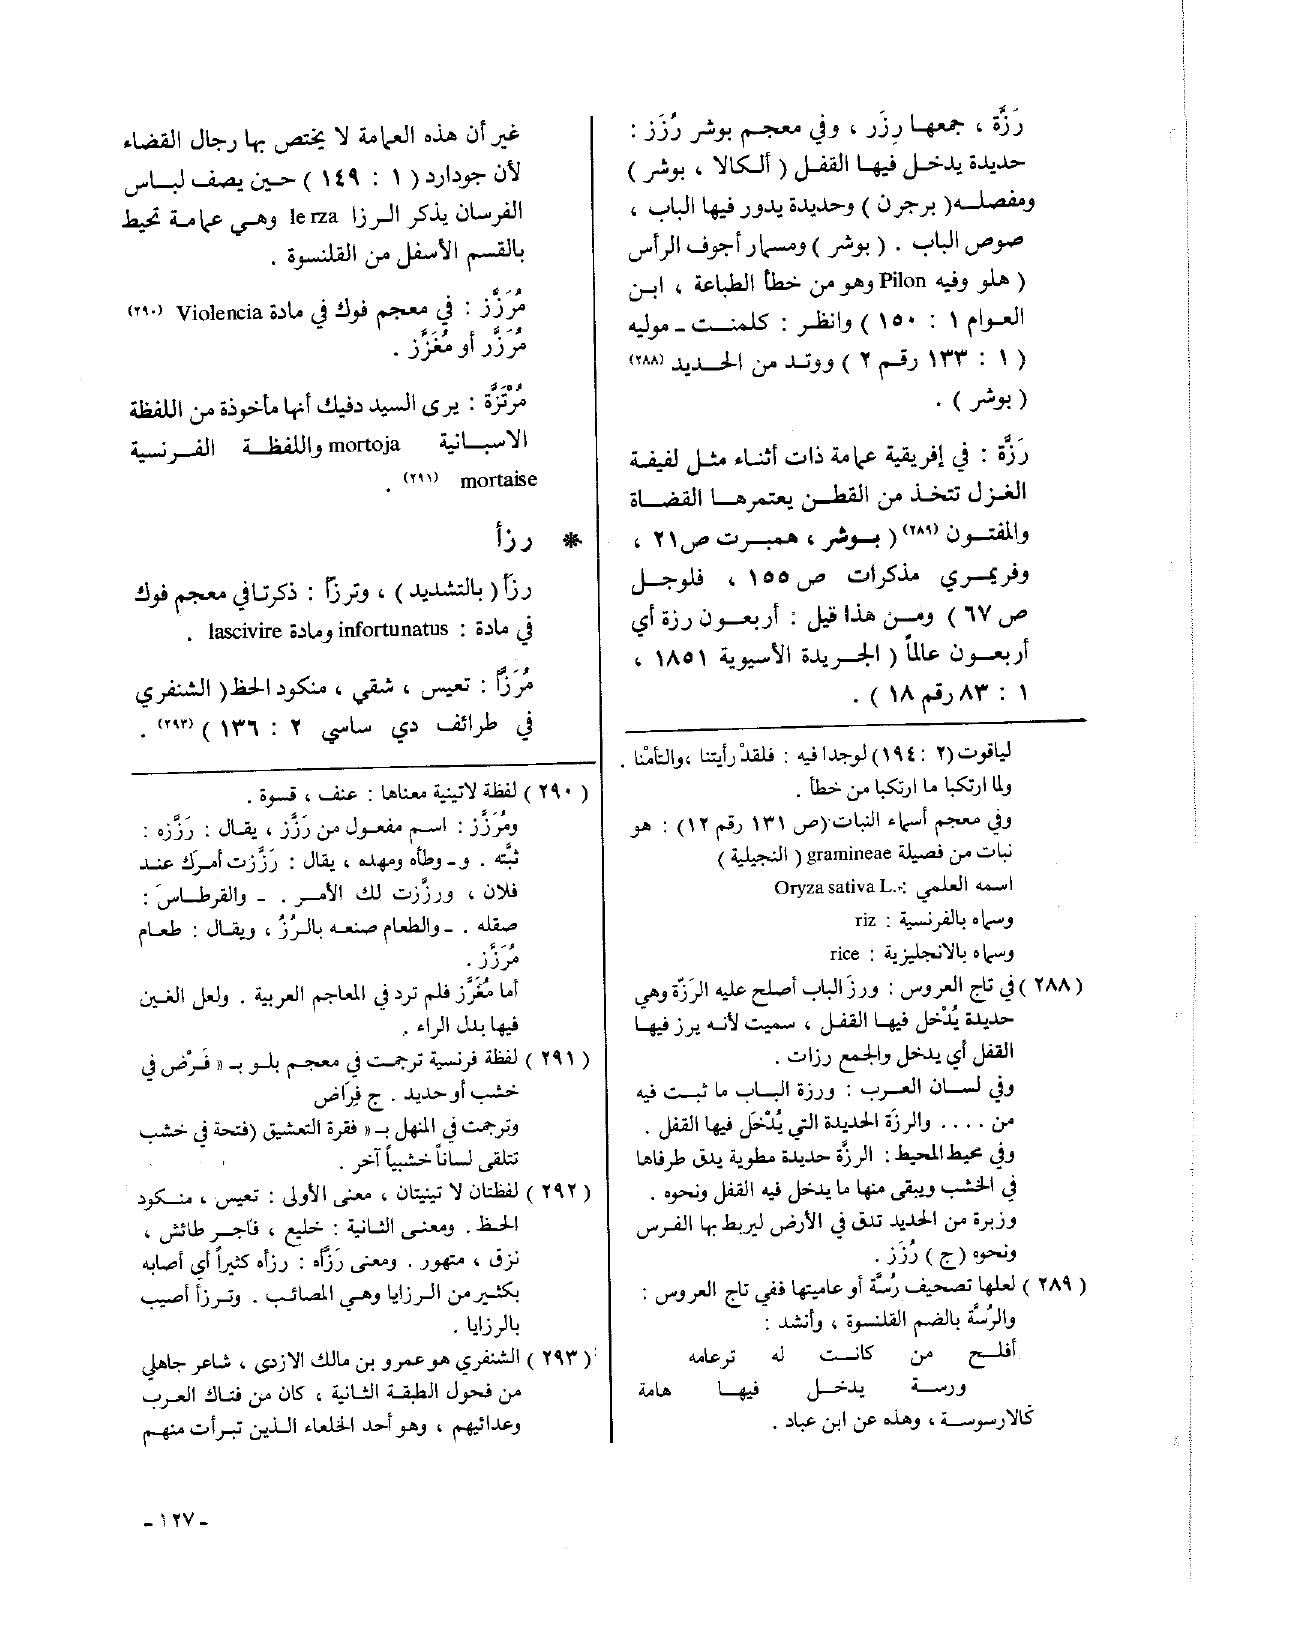 رَزَّة ، جمعها رِزَر ، وفي معجم بوشر رُزَز :
حديدة يدخل فيها القفل ( ألكالا ، بوشر )
ومفصله ( برجرن ) وحديدة يدور فيها الباب ،
صوص الباب . ( بوشر ) ومسمار أجوف الرأس
( هلو وفيه Pilon وهو من خطأ الطباعة ، ابن
العوام ١ : ١٥٠ ) وانظر : كلمنت ـ موليه
( ١ : ١٣٣ رقم ٢ ) ووتد من الحديد (٢٨٨)
( بوشر ) .
رَزَّة : في إفريقية عمامة ذات أثناء مثل لفيفة
الغزل تتخذ من القطن يعتمرها القضاة
والمفتون (٢٨٩) ( بوشر ، همبرت ص٢١ ،
وفريمري مذكرات ص ١٥٥ ، فلوجل
ص ٦٧ ) ومن هذا قيل : أربعون رزة أي
أربعون عالماً ( الجريدة الآسيوية ١٨٥١ ،
١ : ٨٣ رقم ١٨ ) .
لياقوت (٢ : ١٩٤) لوجدا فيه : فلقدْ رأيتنا ،والتأمْنا .
ولما ارتكبا ما ارتكبا من خطأ .
وفي معجم أسماء النبات (ص ١٣١ رقم ١٢) : هو
نبات من فصيلة gramineae ( النجيلية )
اسمه العلمي : Oryza sativa L.
وسماه بالفرنسية : riz
وسماه بالانجليزية : rice
( ٢٨٨ ) في تاج العروس : ورزّ الباب أصلح عليه الرَزّة وهي
حديدة يُدْخل فيها القفل ، سميت لأنه يرز فيها
القفل أي يدخل والجمع رزات .
وفي لسان العرب : ورزة الباب ما ثبت فيه
من .... والرزة الحديدة التي يُدْخَل فيها القفل .
وفي محيط المحيط : الرزَّة حديدة مطوية يدق طرفاها
في الخشب ويبقى منها ما يدخل فيه القفل ونحوه .
وزبرة من الحديد تدق في الأرض ليربط بها الفرس
ونحوه (ج ) رُزَز .
( ٢٨٩ ) لعلها تصحيف رُسَّة أو عاميتها ففي تاج العروس :
والرُسَّة بالضم القلنسوة ، وأنشد :
أفلح من كانت له ترعامه
ورسة يدخل فيها هامة
كالارسوسة ، وهذه عن ابن عباد .
غير أن هذه العمامة لا يختص بها رجال القضاء
لأن جودارد ( ١ : ١٤٩ ) حين يصف لباس
الفرسان يذكر الرزا le rza وهي عمامة تحيط
بالقسم الأسفل من القلنسوة .
مُرَزَّز : في معجم فوك في مادة Violencia (٢٩٠)
مُرَزَّر أو مُغَزَّز .
مُرْتَزَّة : يرى السيد دفيك أنها مأخوذة من اللفظة
الاسبانية mortoja واللفظة الفرنسية
mortaise (٢٩١) .
* رزأ
رزأ ( بالتشديد ) ، وترزأ : ذكرتا في معجم فوك
في مادة : infortunatus ومادة lascivire .
مُرَزَّأ : تعيس ، شقي ، منكود الحظ ( الشنفري
في طرائف دي ساسي ٢ : ١٣٦ ) (٢٩٣) .
( ٢٩٠ ) لفظة لاتينية معناها : عنف ، قسوة .
ومُرَزَّز : اسم مفعول من رَزَّز ، يقال : رَزَّزه :
ثبَّته . و ـ وطأه ومهده ، يقال : رَزَّزت أمرك عند
فلان ، ورزّزت لك الأمر . ـ والقرطاسَ :
صقله . ـ والطعام صنعه بالرُزّ ، ويقال : طعام
مُرَزَّز .
أما مُغَزَّز فلم ترد في المعاجم العربية . ولعل الغين
فيها بدل الراء .
( ٢٩١ ) لفظة فرنسية ترجمت في معجم بلو بـ « فَرْض في
خشب أو حديد . ج فِرَاض
وترجمت في المنهل بـ « فقرة التعشيق (فتحة في خشب
تتلقى لساناً خشبياً آخر .
( ٢٩٢ ) لفظتان لا تينيتان ، معنى الأولى : تعيس ، منكود
الحظ . ومعنى الثانية : خليع ، فاجر طائش ،
نزق ، متهور . ومعنى رَزَّأه : رزأه كثيراً أي أصابه
بكثير من الرزايا وهي المصائب . وترزأ أصيب
بالرزايا .
( ٢٩٣ ) الشنفري هو عمرو بن مالك الازدي ، شاعر جاهلي
من فحول الطبقة الثانية ، كان من فتاك العرب
وعدائيهم ، وهو أحد الخلعاء الذين تبرأت منهم
ـ ١٢٧ ـ